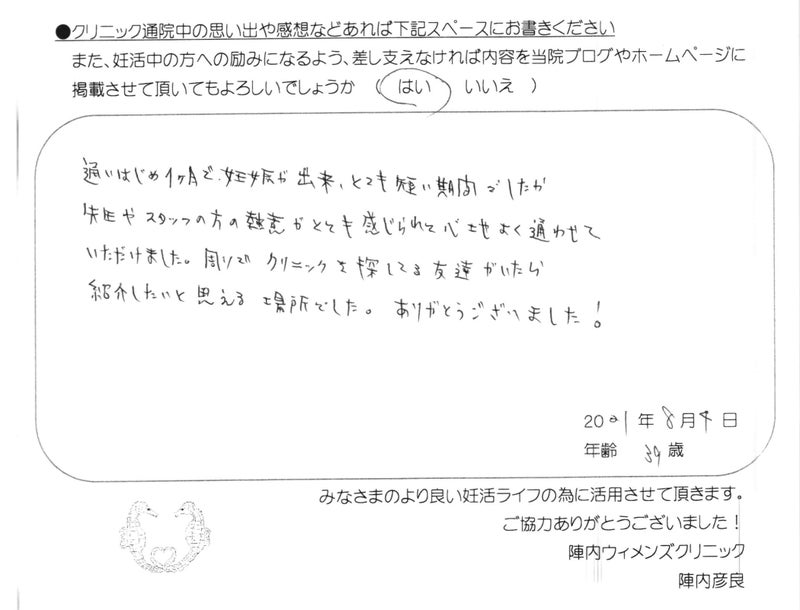 ●クリニック通院中の思い出や感想などあれば下記スペースにお書きください
また、妊活中の方への励みになるよう、差し支えなければ内容を当院ブログやホームページに
掲載させて頂いてもよろしいでしょうか （ はい いいえ ）
通いはじめ1ヶ月で妊娠が出来、とても短い期間でしたが
先生やスタッフの方の熱意がとても感じられて心地よく通わせて
いただけました。周りでクリニックを探してる友達がいたら
紹介したいと思える場所でした。ありがとうございました！
2021年8月4日
年齢 39歳
みなさまのより良い妊活ライフの為に活用させて頂きます。
ご協力ありがとうございました！
陣内ウィメンズクリニック
陣内彦良